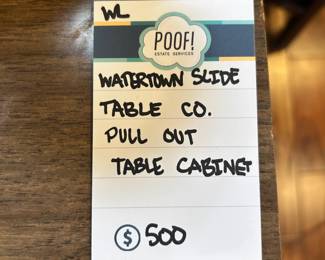 WL
POOF!
ESTATE SERVICES
WATERTOWN SLIDE
TABLE CO.
PULL OUT
TABLE CABINET
$ 500